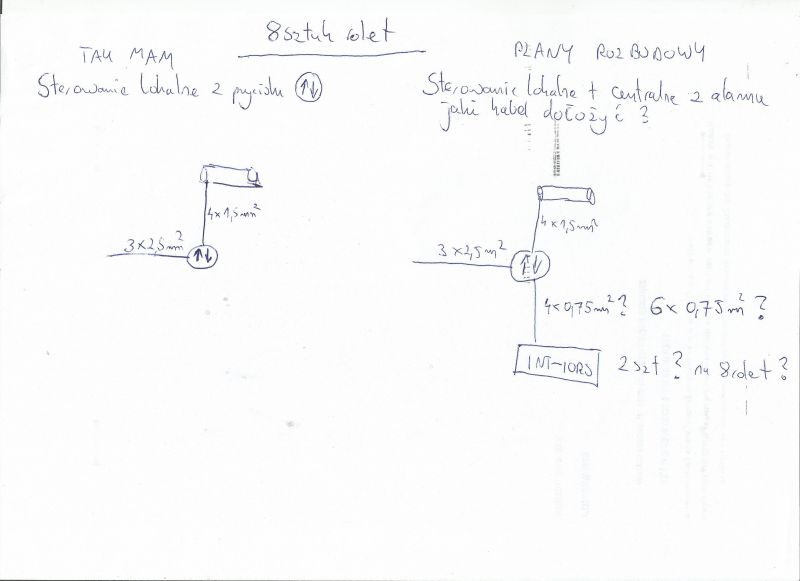 8 sztuk rolet
TAK MAM
Sterowanie lokalne z przycisku ↑↓
4x1,5mm²
3x2,5mm²
↑↓
PLANY ROZBUDOWY
Sterowanie lokalne + centralne z alarmu
jaki kabel dołożyć ?
4x1,5mm²
3x2,5m²
↑↓
4x0,75mm²? 6x0,75m²?
INT-IORS 2szt ? na 8rolet ?